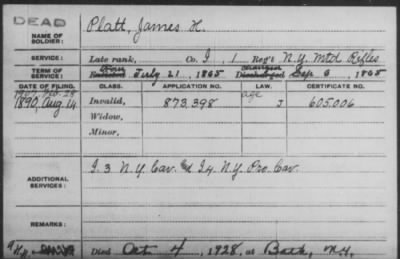 DEAD
NAME OF SOLDIER: Platt, James H.
SERVICE: Late rank, Co. I, 1 Reg't N.Y. Mtd Rifles
TERM OF SERVICE: Enrolled July 21, 1865 Discharged Sep 6, 1865
DATE OF FILING. CLASS. APPLICATION NO. LAW. CERTIFICATE NO.
1907, Feb. 28 age
1890, Aug 14 Invalid, 873,398 J 605,006
Widow,
Minor,
ADDITIONAL SERVICES: I. 3 N.Y. Cav. & I 4 N.Y. Pro. Cav.
REMARKS:
Died Oct. 4, 1928, at Bath, N.Y.